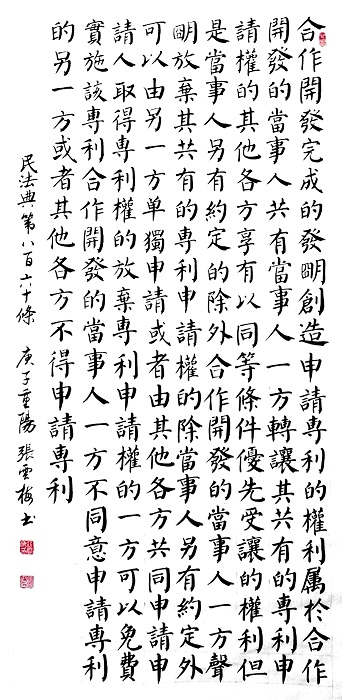 合作開發完成的發眀創造申請專利的權利属於合作
開發的當事人共有當事人一方轉讓其共有的專利申
請權的其他各方享有以同等條件優先受讓的權利但
是當事人另有約定的除外合作開發的當事人一方聲
眀放棄其共有的專利申請權的除當事人另有約定外
可以由另一方单獨申請或者由其他各方共同申請申
請人取得專利權的放棄專利申請權的一方可以免費
實施該專利合作開發的當事人一方不同意申請專利
的另一方或者其他各方不得申請專利
民法典第八百六十條 庚子重陽 張雲梅书